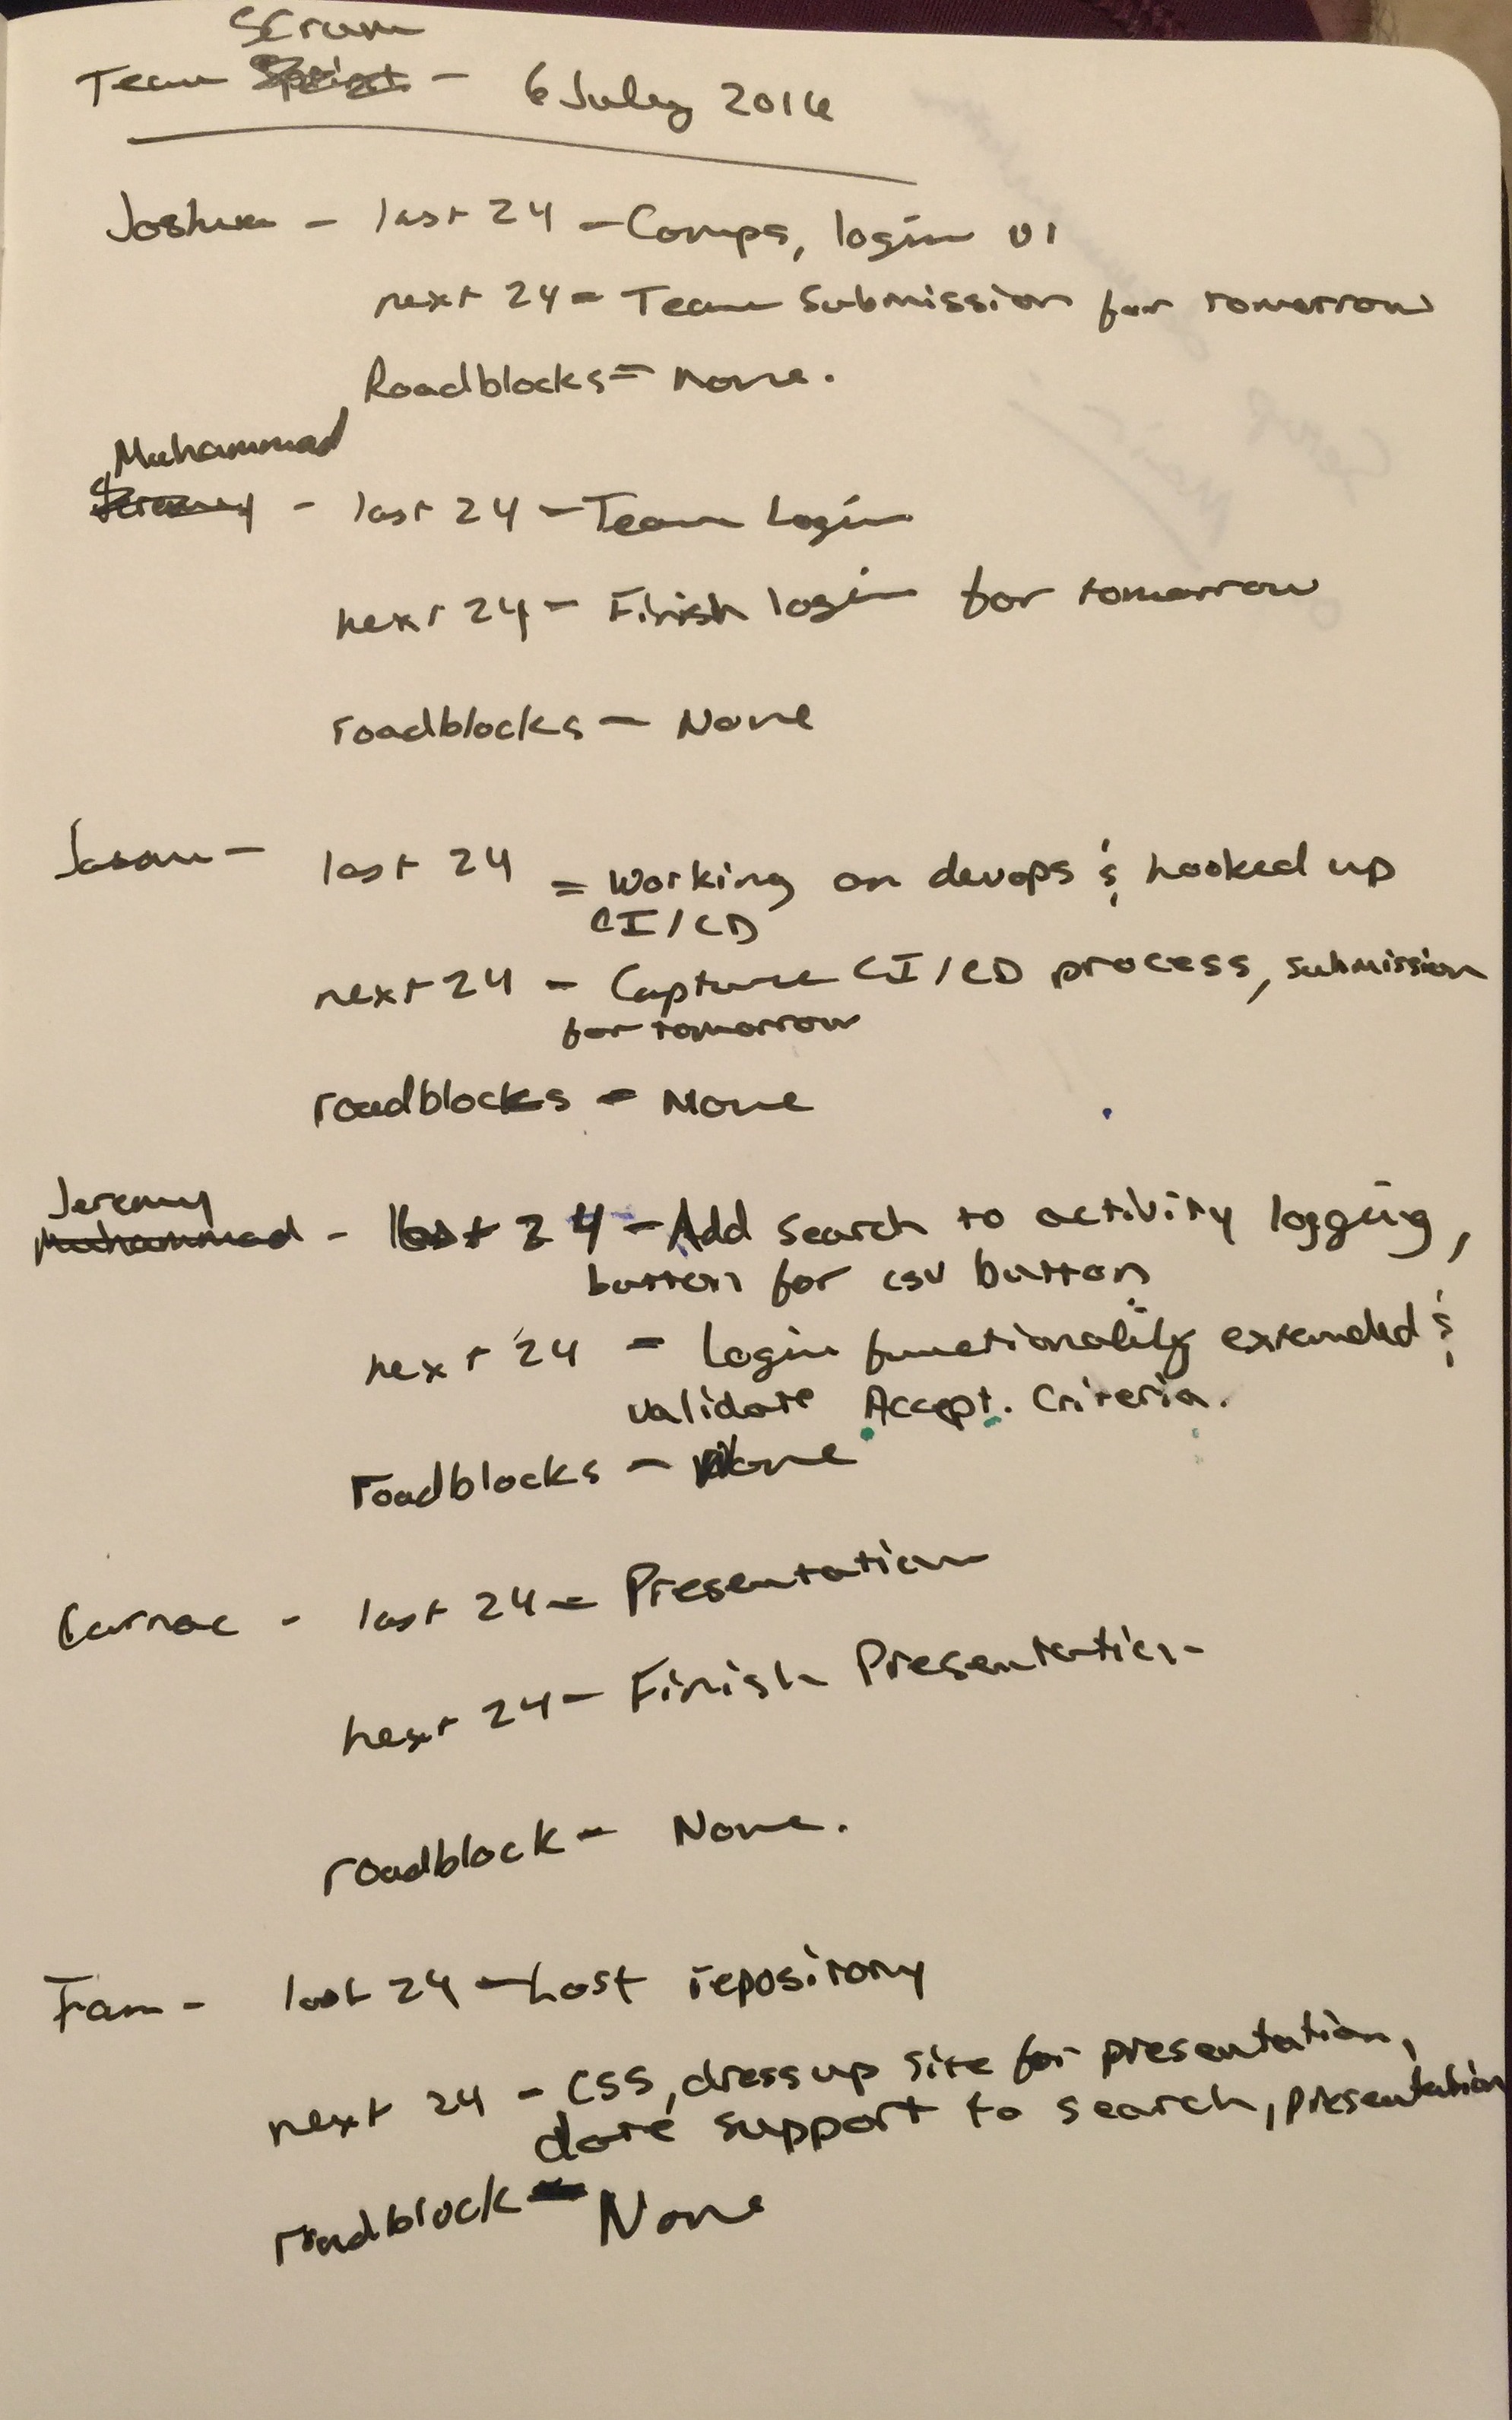 Scrum
Team Sprint - 6 July 2016
Joshua - last 24 - Comps, login UI
next 24 = Team submission for tomorrow
Roadblocks = None.
Muhammad
Jeremy - last 24 - Team Login
next 24 - Finish login for tomorrow
roadblocks - None
Jason - last 24 = Working on devops & hooked up
CI/CD
next 24 - Capture CI/CD process, submission
for tomorrow
roadblocks - None
Jeremy
Muhammad - last 24 - Add search to activity logging,
button for csv button
next 24 = Login functionality extended &
validate Accept. Criteria.
roadblocks - None
Carnac - last 24 - Presentation
next 24 - Finish Presentation
roadblock - None.
Fam - last 24 - Lost repository
next 24 - CSS, dress up site for presentation,
date support to search, presentation
roadblock - None